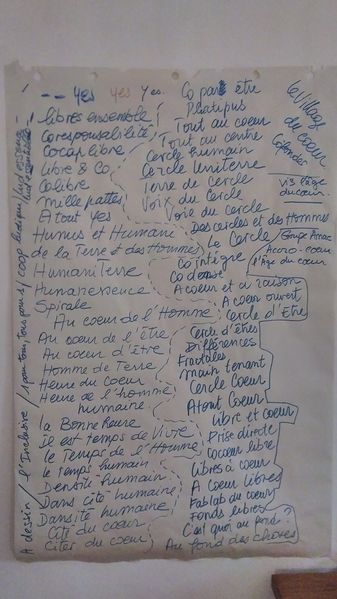 -- yes yes yes.
libres ensemble
Coresponsabilité
Cocap libre
libre & Co
Colibre
mille pattes
A tout yes
Humus et Humani
de la Terre et des Hommes
Humani Terre
Humanessence
Spirale
Au coeur de l'Homme
Au coeur de l'être
Au coeur d'être
Homme de Terre
Heure du Coeur
Heure de l'homme
humaine
la Bonne Heure
il est temps de Vivre
le Temps de l'Homme
le temps humain
Densité humain
Dans cité humaine
Dansité humaine
Cité du coeur
Citer du coeur
Co par être
Platipus
Tout au coeur
Tout au centre
Cercle humain
Cercle Uniterre
Terre de Cercle
Voix du Cercle
Voie du cercle
Des cercles et des Hommes
Le Cercle
Cointègre
Co dense
A coeur et à raison
A coeur ouvert
Cercle d'Être
Cercle d'êtres
Différences
Fractales
main tenant
Cercle Coeur
Atout Coeur
libre et Coeur
Prise directe
Cocoeur libre
Libres à coeur
A Coeur libres
Fablab du coeur
Fonds libres
C'est quoi au fond ?
Au fond des choses
Le Village
du coeur
Cofonder
vis l'âge
du coeur.
Accro-coeur
l'Âge du coeur
A dessin / l'Inclusive / 1 pour tous, tous pour 1 / coop